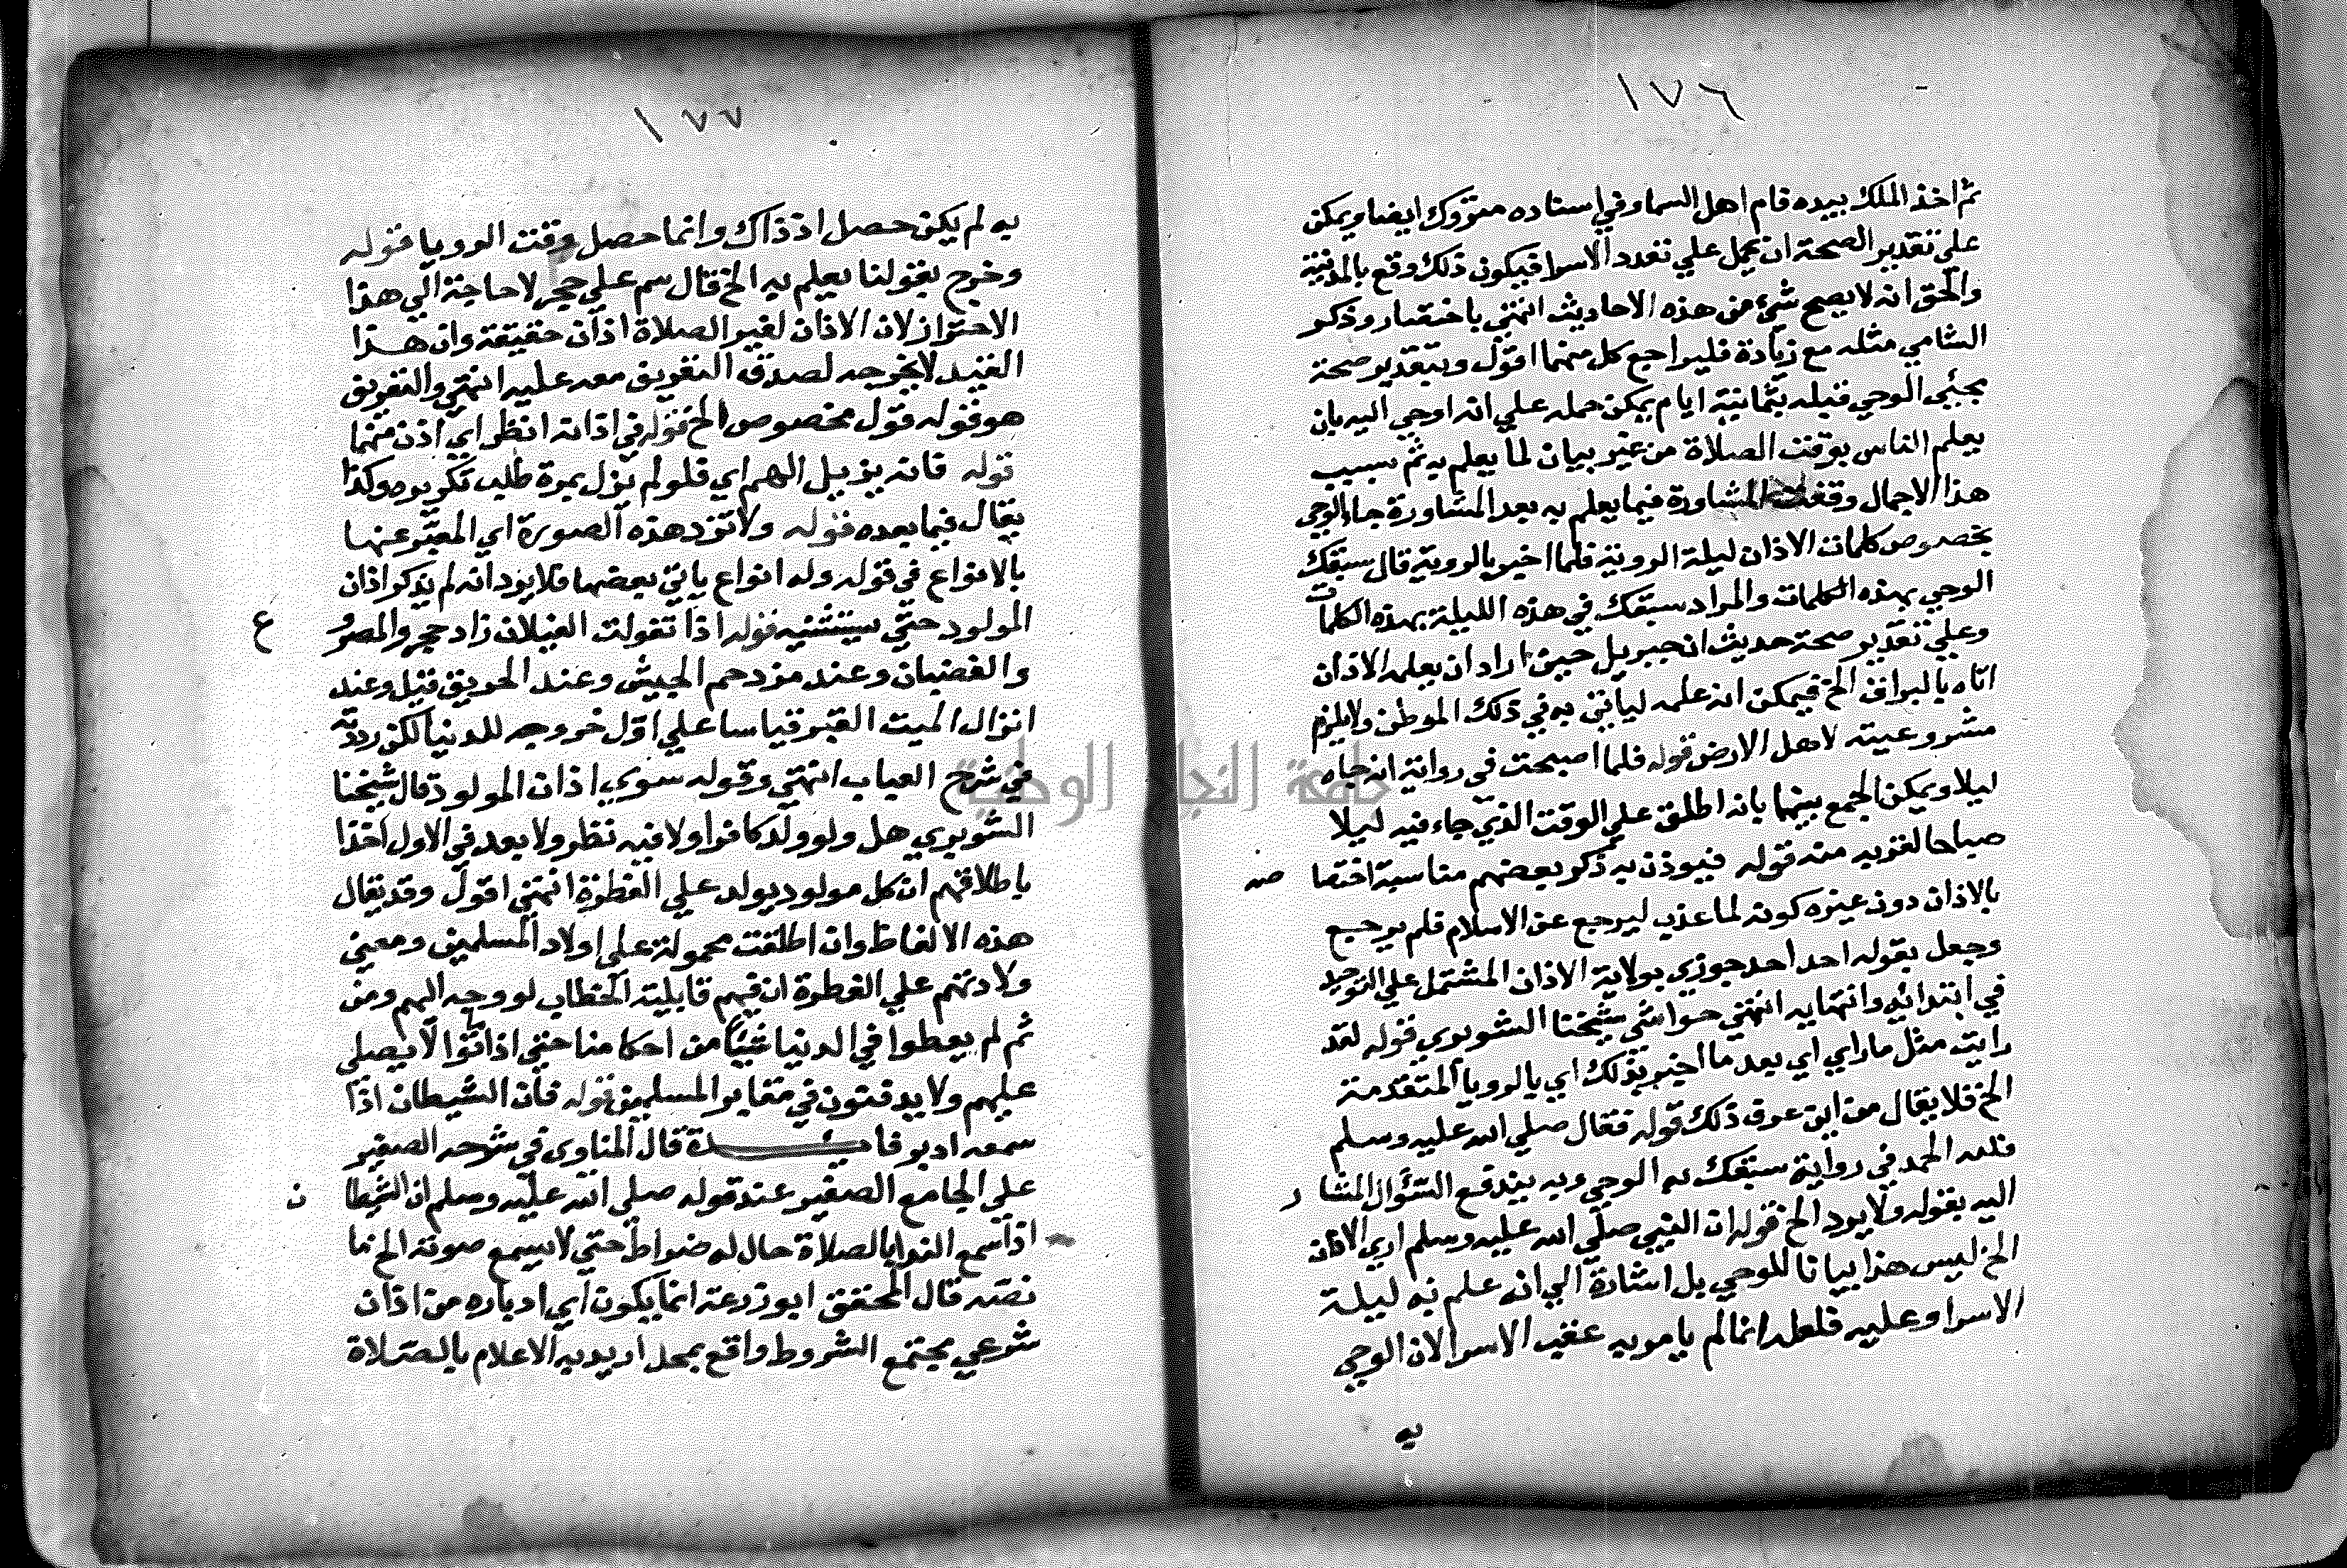 ١٧٦
ثم اخذ الملك بيده قام اهل السما وفي اسناده متروك ايضا ويمكن
علي تقدير الصحة ان يحمل علي تعدد الاسرا فيكون ذلك وقع بالمدينة
والحق انه لا يصح شيء من هذه الاحاديث انتهي باختصار وذكر
الشامي مثله مع زيادة فليراجع كل منهما اقول وبتقدير صحة
مجيئ الوحي قبله بثمانية ايام يمكن حمله علي انه اوحي اليه بان
يعلم الناس بوقت الصلاة من غير بيان لما يعلم به ثم بسبب
هذا الاجمال وقعت المشاورة فيما يعلم به بعد المشاورة جاء الوحي
بخصوص كلمات الاذان ليلة الروية فلما اخبر بالروية قال سبقك
الوحي بهذه الكلمات والمراد سبقك في هذه الليلة بهذه الكلمات
وعلي تقدير صحة حديث ان جبريل حين اراد ان يعلمه الاذان
اتاه بالبراق الخ فيمكن انه علمه لياتي به في ذلك الموطن ولا يلزم
مشروعيته لاهل الارض قوله فلما اصبحت في رواية انه جاه
ليلا ويمكن الجمع بينهما بانه اطلق علي الوقت الذي جاء فيه ليلا
صباحا لقربه منه قوله فيوذن به ذكر بعضهم مناسبة اختصا ص
بالاذان دون غيره كونه لما عذب ليرجع عن الاسلام فلم يرجع
وجعل يقول احد احد جوزي بولاية الاذان المشتمل علي التوحيد
في ابتدائه وانتهايه انتهي حواشي شيخنا الشوبري قوله لقد
رايت مثل ما راي اي بعد ما اخبر بذلك اي بالرويا المتقدمة
الخ فلا يقال من اين عرف ذلك قوله فقال صلي الله عليه وسلم
فلله الحمد في رواية سبقك به الوحي وبه يندفع السؤال المشا ر
اليه بقوله ولا يرد الخ قوله ان النبي صلي الله عليه وسلم اري الاذان
الخ ليس هذا بيانا للوحي بل اشارة الي انه علم به ليلة
الاسرا وعليه فلعله انما لم يامر به عقب الاسرا لان الوحي
به
١٧٧
به لم يكن حصل اذ ذاك وانما حصل وقت الرويا قوله
وخرج بقولنا يعلم به الخ قال سم علي حجر لا حاجة الي هذا
الاحتراز لان الاذان لغير الصلاة اذان حقيقة وان هذا
القيد لا يخرجه لصدق التعريف معه عليه انتهي والتعريف
هو قوله قول مخصوص الخ قوله في اذانه انظر اي اذن منهما
قوله فانه يزيل الهم اي فلو لم يزل بمرة طلب تكريره وكذا
يقال فيما بعده قوله ولا ترد هذه الصورة اي المعبر عنها
بالانواع في قوله وله انواع ياتي بعضها فلا يرد انه لم يذكر اذان
المولود حتي يستثنيه قوله اذا تغولت الغيلان زاد حجر والمصرو ع
والغضبان وعند مزدحم الجيش وعند الحريق قيل وعند
انزال الميت القبر قياسا علي اول خروجه للدنيا لكن رددته
في شرح العباب انتهي وقوله سوي اذان المولود قال شيخنا
الشوبري هل ولو ولد كافرا ولا فيه نظر ولا يبعد في الاول اخذا
باطلاقهم ان كل مولود يولد علي الفطرة انتهي اقول وقد يقال
هذه الالفاظ وان اطلقت محمولة علي اولاد المسلمين ومعني
ولادتهم علي الفطرة ان فيهم قابلية الخطاب لو وجه اليهم ومن
ثم لم يعطوا في الدنيا شيئا من احكامنا حتي اذا ماتوا لا يصلي
عليهم ولا يدفنون في مقابر المسلمين قوله فان الشيطان اذا
سمعه ادبر فايدة قال المناوي في شرحه الصغير
علي الجامع الصغير عند قوله صلي الله عليه وسلم ان الشيطا ن
اذا سمع الندا بالصلاة حال له ضراط حتي لا يسمع صوته الخ ما
نصه قال المحقق ابو زرعة انما يكون اي ادباره من اذان
شرعي مجتمع الشروط واقع بمحل اريد به الاعلام بالصلاة
جامعة النجاح الوطنية